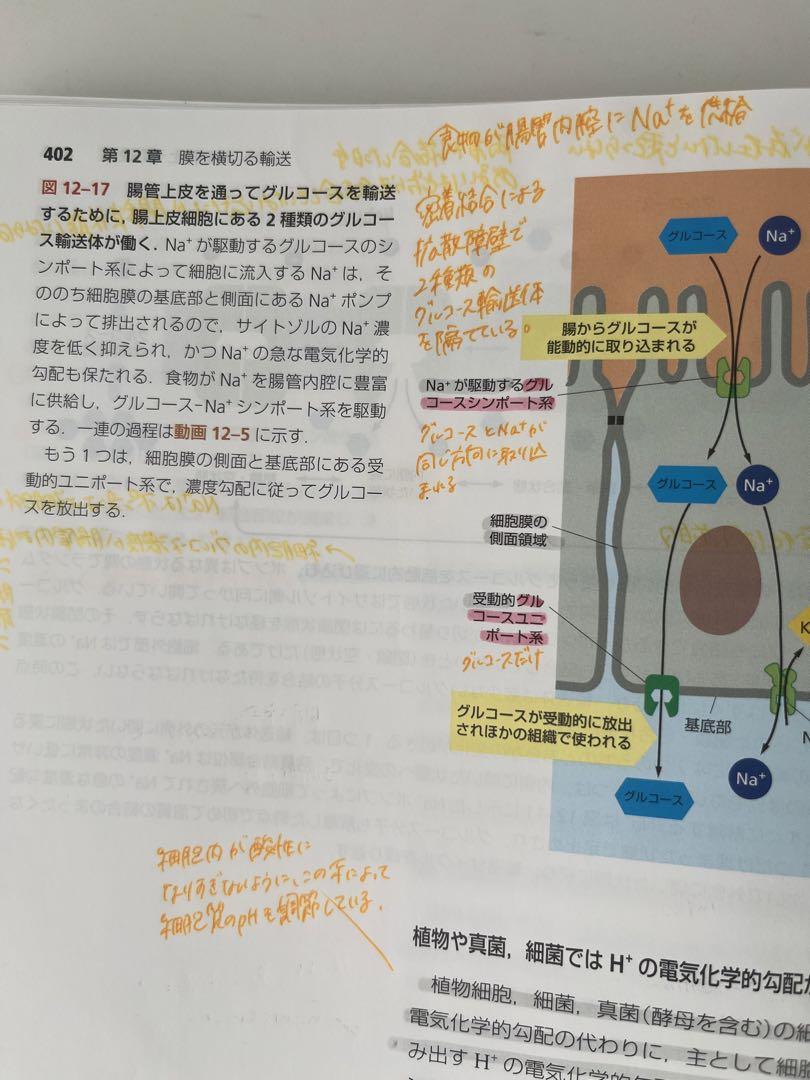 402 第12章 膜を横切る輸送
図 12–17 腸管上皮を通ってグルコースを輸送
するために，腸上皮細胞にある 2 種類のグルコー
ス輸送体が働く．Na⁺が駆動するグルコースのシ
ンポート系によって細胞に流入する Na⁺は，そ
ののち細胞膜の基底部と側面にある Na⁺ポンプ
によって排出されるので，サイトゾルの Na⁺濃
度を低く抑えられ，かつ Na⁺の急な電気化学的
勾配も保たれる．食物が Na⁺を腸管内腔に豊富
に供給し，グルコース–Na⁺シンポート系を駆動
する．一連の過程は動画 12–5 に示す．
もう 1 つは，細胞膜の側面と基底部にある受
動的ユニポート系で，濃度勾配に従ってグルコー
スを放出する．
食物が腸管内腔に Na⁺を供給
密着結合による
拡散障壁で
2種類の
グルコース輸送体
を隔てている。
グルコース
Na⁺
腸からグルコースが
能動的に取り込まれる
Na⁺が駆動するグル
コースシンポート系
グルコースとNa⁺が
同じ方向に取り込
まれる
グルコース
Na⁺
細胞膜の
側面領域
受動的グル
コースユニ
ポート系
グルコースだけ
K
グルコースが受動的に放出
されほかの組織で使われる
基底部
N
Na⁺
グルコース
細胞内が酸性に
なりすぎないように、この系によって
細胞質のpHを調節している.
植物や真菌，細菌では H⁺の電気化学的勾配が
植物細胞，細菌，真菌（酵母を含む）の細
電気化学的勾配の代わりに，主として細胞
み出す H⁺の電気化学的